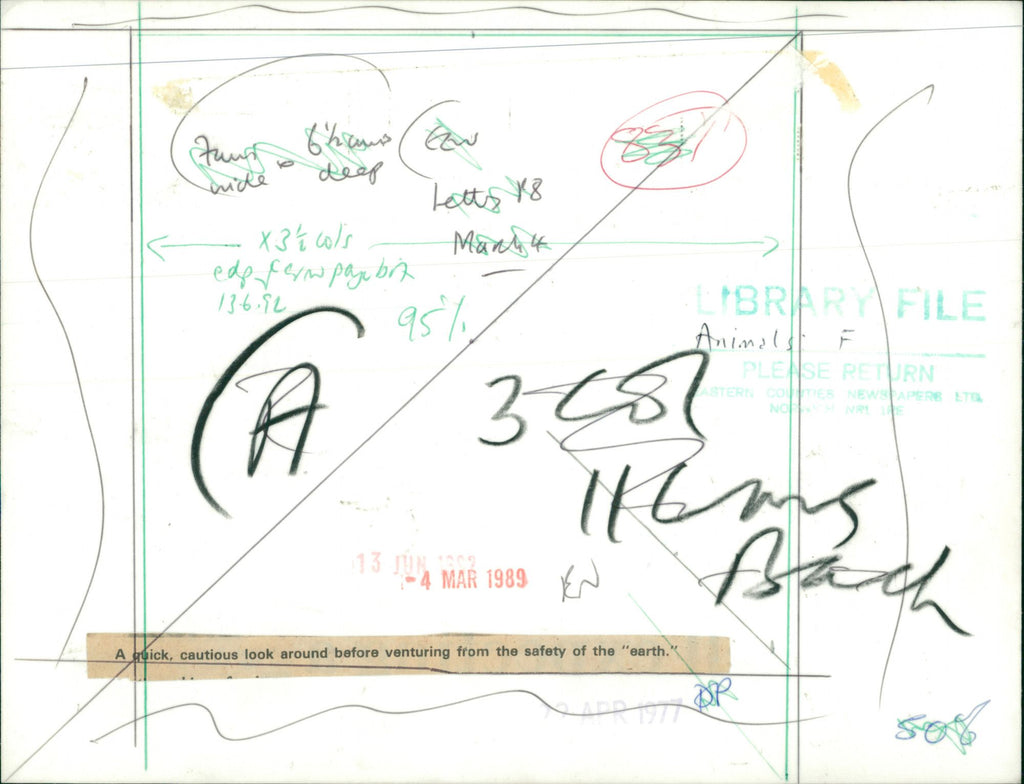 7 ems wide × 6½ ems deep
EEN
Letts P8
March 4
831
× 3½ cols
edp f
136.92
95%
LIBRARY FILE
Animals: F
PLEASE RETURN
EASTERN COUNTIES NEWSPAPERS LTD.
NORWICH NR1 1RE
A
3 col
116 ems
Bach
13 JUN
-4 MAR 1989
EN
A quick, cautious look around before venturing from the safety of the "earth."
APR 1977
DP
508